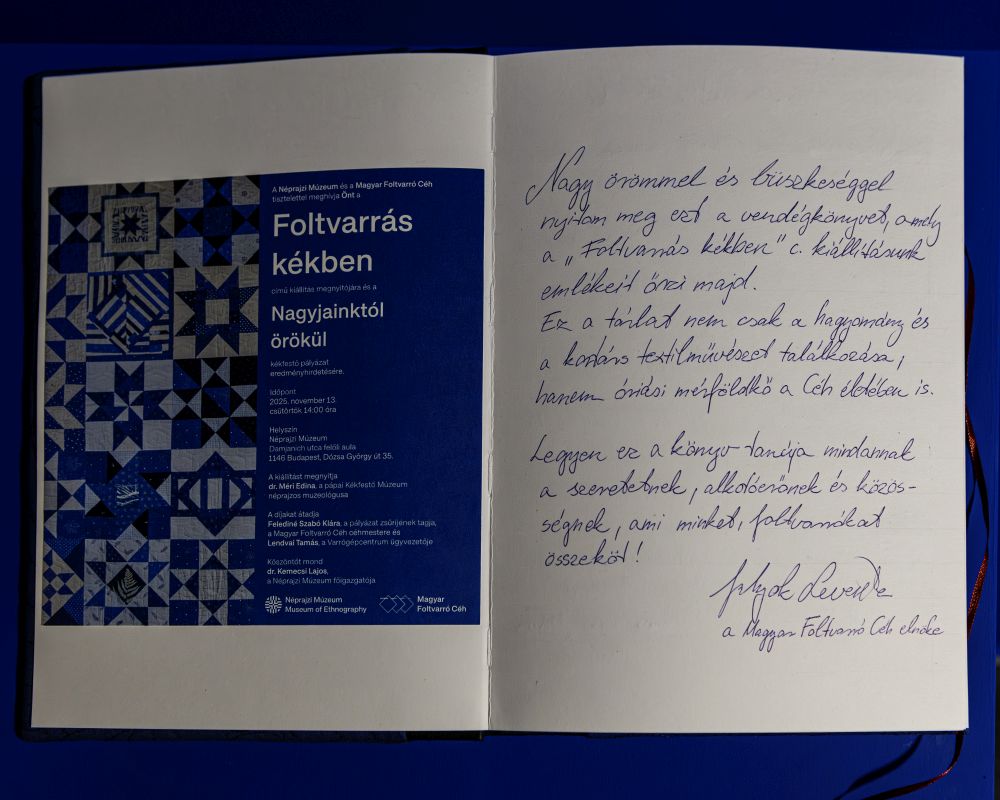 A Néprajzi Múzeum és a Magyar Foltvarró Céh
tisztelettel meghívja Önt a
Foltvarrás
kékben
című kiállítás megnyitójára és a
Nagyjainktól
örökül
kékfestő pályázat
eredményhirdetésére.
Időpont
2025. november 13.
csütörtök 14:00 óra
Helyszín
Néprajzi Múzeum
Damjanich utca felőli aula
1146 Budapest, Dózsa György út 35.
A kiállítást megnyitja
dr. Méri Edina, a pápai Kékfestő Múzeum
néprajzos muzeológusa
A díjakat átadja
Felediné Szabó Klára, a pályázat zsűrijének tagja,
a Magyar Foltvarró Céh céhmestere és
Lendvai Tamás, a Varrógépcentrum ügyvezetője
Köszöntőt mond
dr. Kemecsi Lajos,
a Néprajzi Múzeum főigazgatója
Néprajzi Múzeum
Museum of Ethnography
Magyar
Foltvarró Céh
Nagy örömmel és büszkeséggel
nyitom meg ezt a vendégkönyvet, amely
a „Foltvarrás kékben" c. kiállításunk
emlékeit őrzi majd.
Ez a tárlat nem csak a hagyomány és
a kortárs textilművészet találkozása,
hanem óriási mérföldkő a Céh életében is.
Legyen ez a könyv tanúja mindannak
a szeretetnek, alkotóerőnek és közös-
ségnek, ami minket, foltvarrókat
összeköt!
Levente
a Magyar Foltvarró Céh elnöke